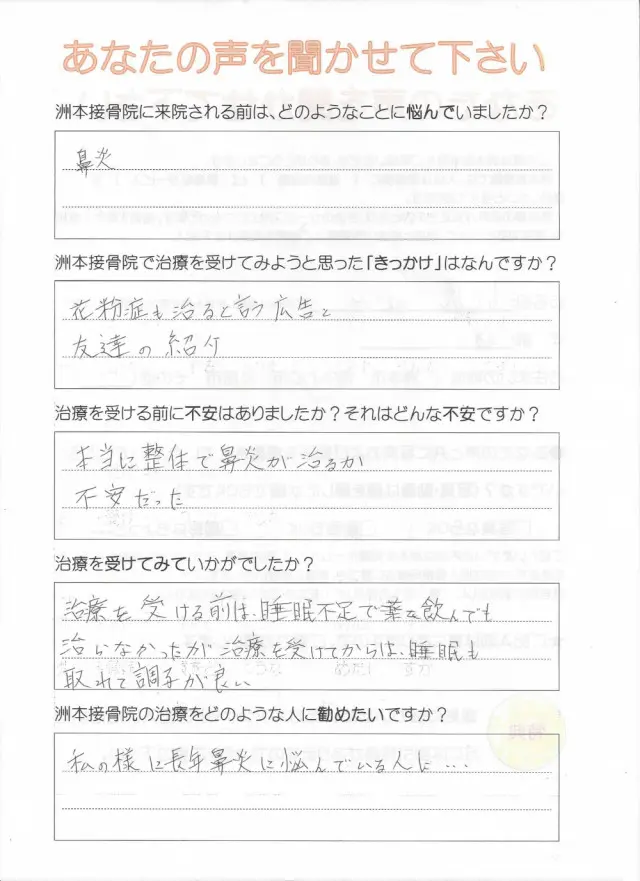 あなたの声を聞かせて下さい
洲本接骨院に来院される前は、どのようなことに悩んでいましたか？
鼻炎
洲本接骨院で治療を受けてみようと思った「きっかけ」はなんですか？
花粉症も治ると言う広告と
友達の紹介
治療を受ける前に不安はありましたか？それはどんな不安ですか？
本当に整体で鼻炎が治るか
不安だった
治療を受けてみていかがでしたか？
治療を受ける前は、睡眠不足で薬を飲んでも
治らなかったが治療を受けてからは、睡眠も
取れて調子が良い
洲本接骨院の治療をどのような人に勧めたいですか？
私の様に長年鼻炎に悩んでいる人に・・・
特典